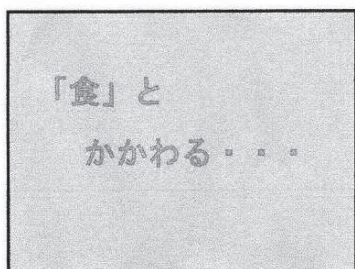 「食」と
かかわる・・・